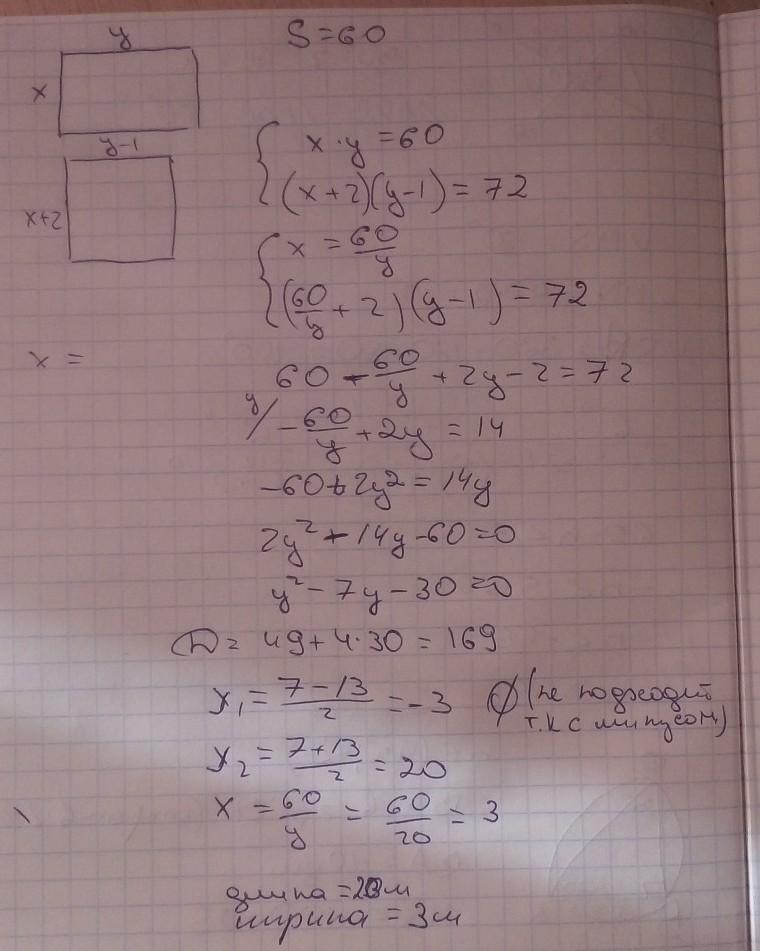 y
S=60
x
x·y=60
y-1
(x+2)(y-1)=72
x+2
x=60/y
(60/y+2)(y-1)=72
x=
60-60/y+2y-2=72
y/ -60/y+2y=14
-60+2y²=14y
2y²-14y-60=0
y²-7y-30=0
D=49+4·30=169
y₁=(7-13)/2=-3 ∅ (не подходит
т.к с минусом)
y₂=(7+13)/2=20
x=60/y=60/20=3
длина=20м
ширина=3м